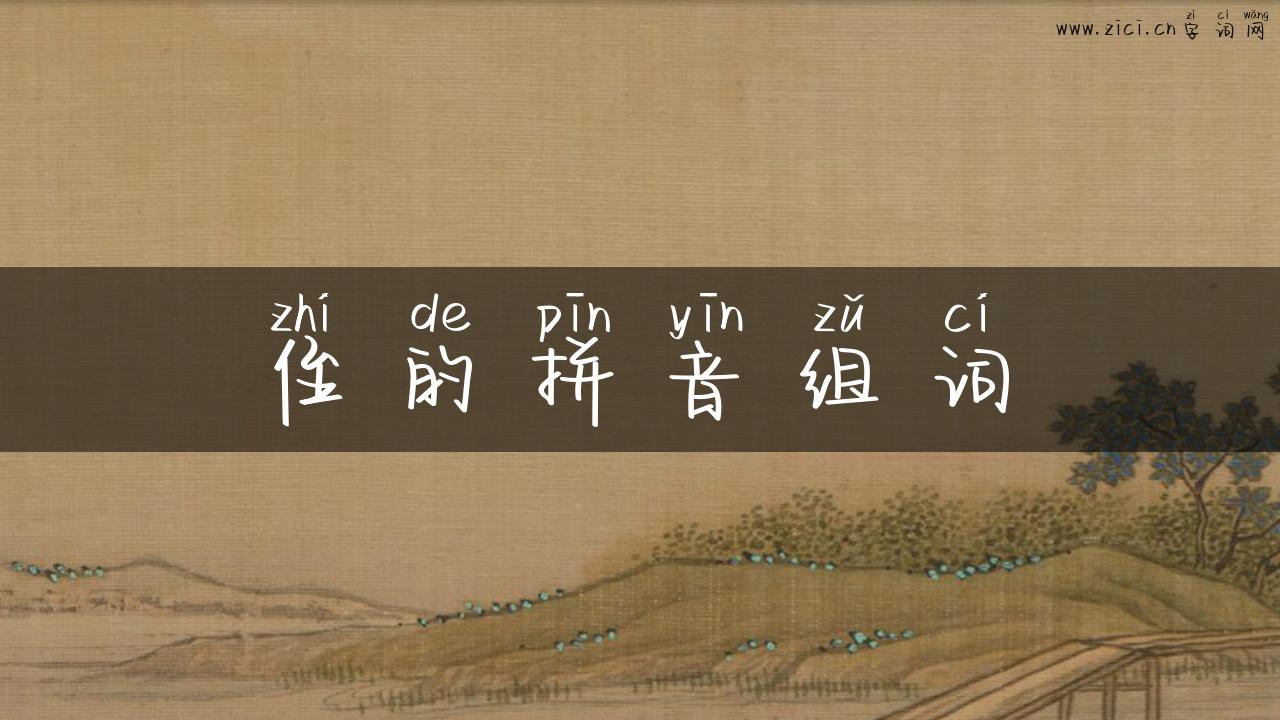 zì cí wǎng
www.zici.cn字词网
zhí de pīn yīn zǔ cí
侄的拼音组词